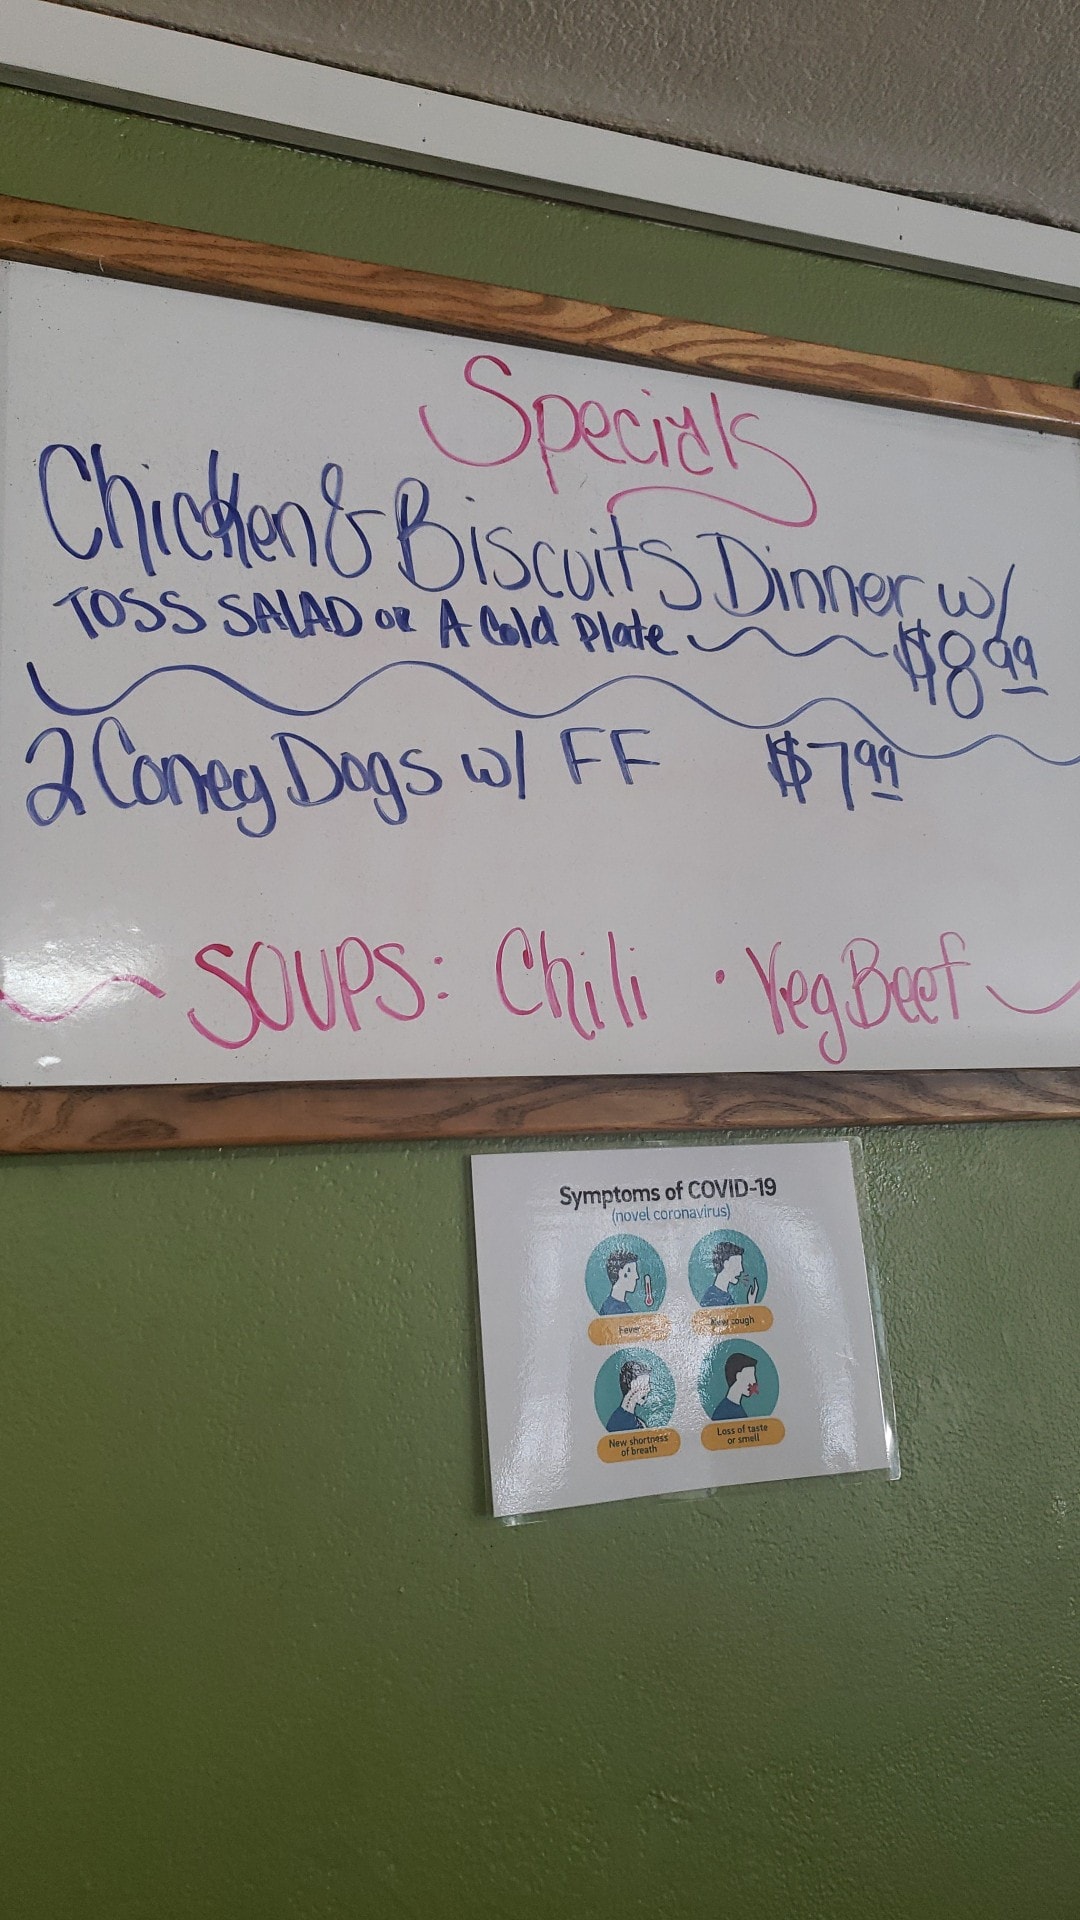 Specials
Chicken & Biscuits Dinner w/
TOSS SALAD OR A Cold Plate $8.99
2 Coney Dogs w/ FF $7.99
SOUPS: Chili • Veg Beef
Symptoms of COVID-19
(novel coronavirus)
Fever
New cough
New shortness
of breath
Loss of taste
or smell